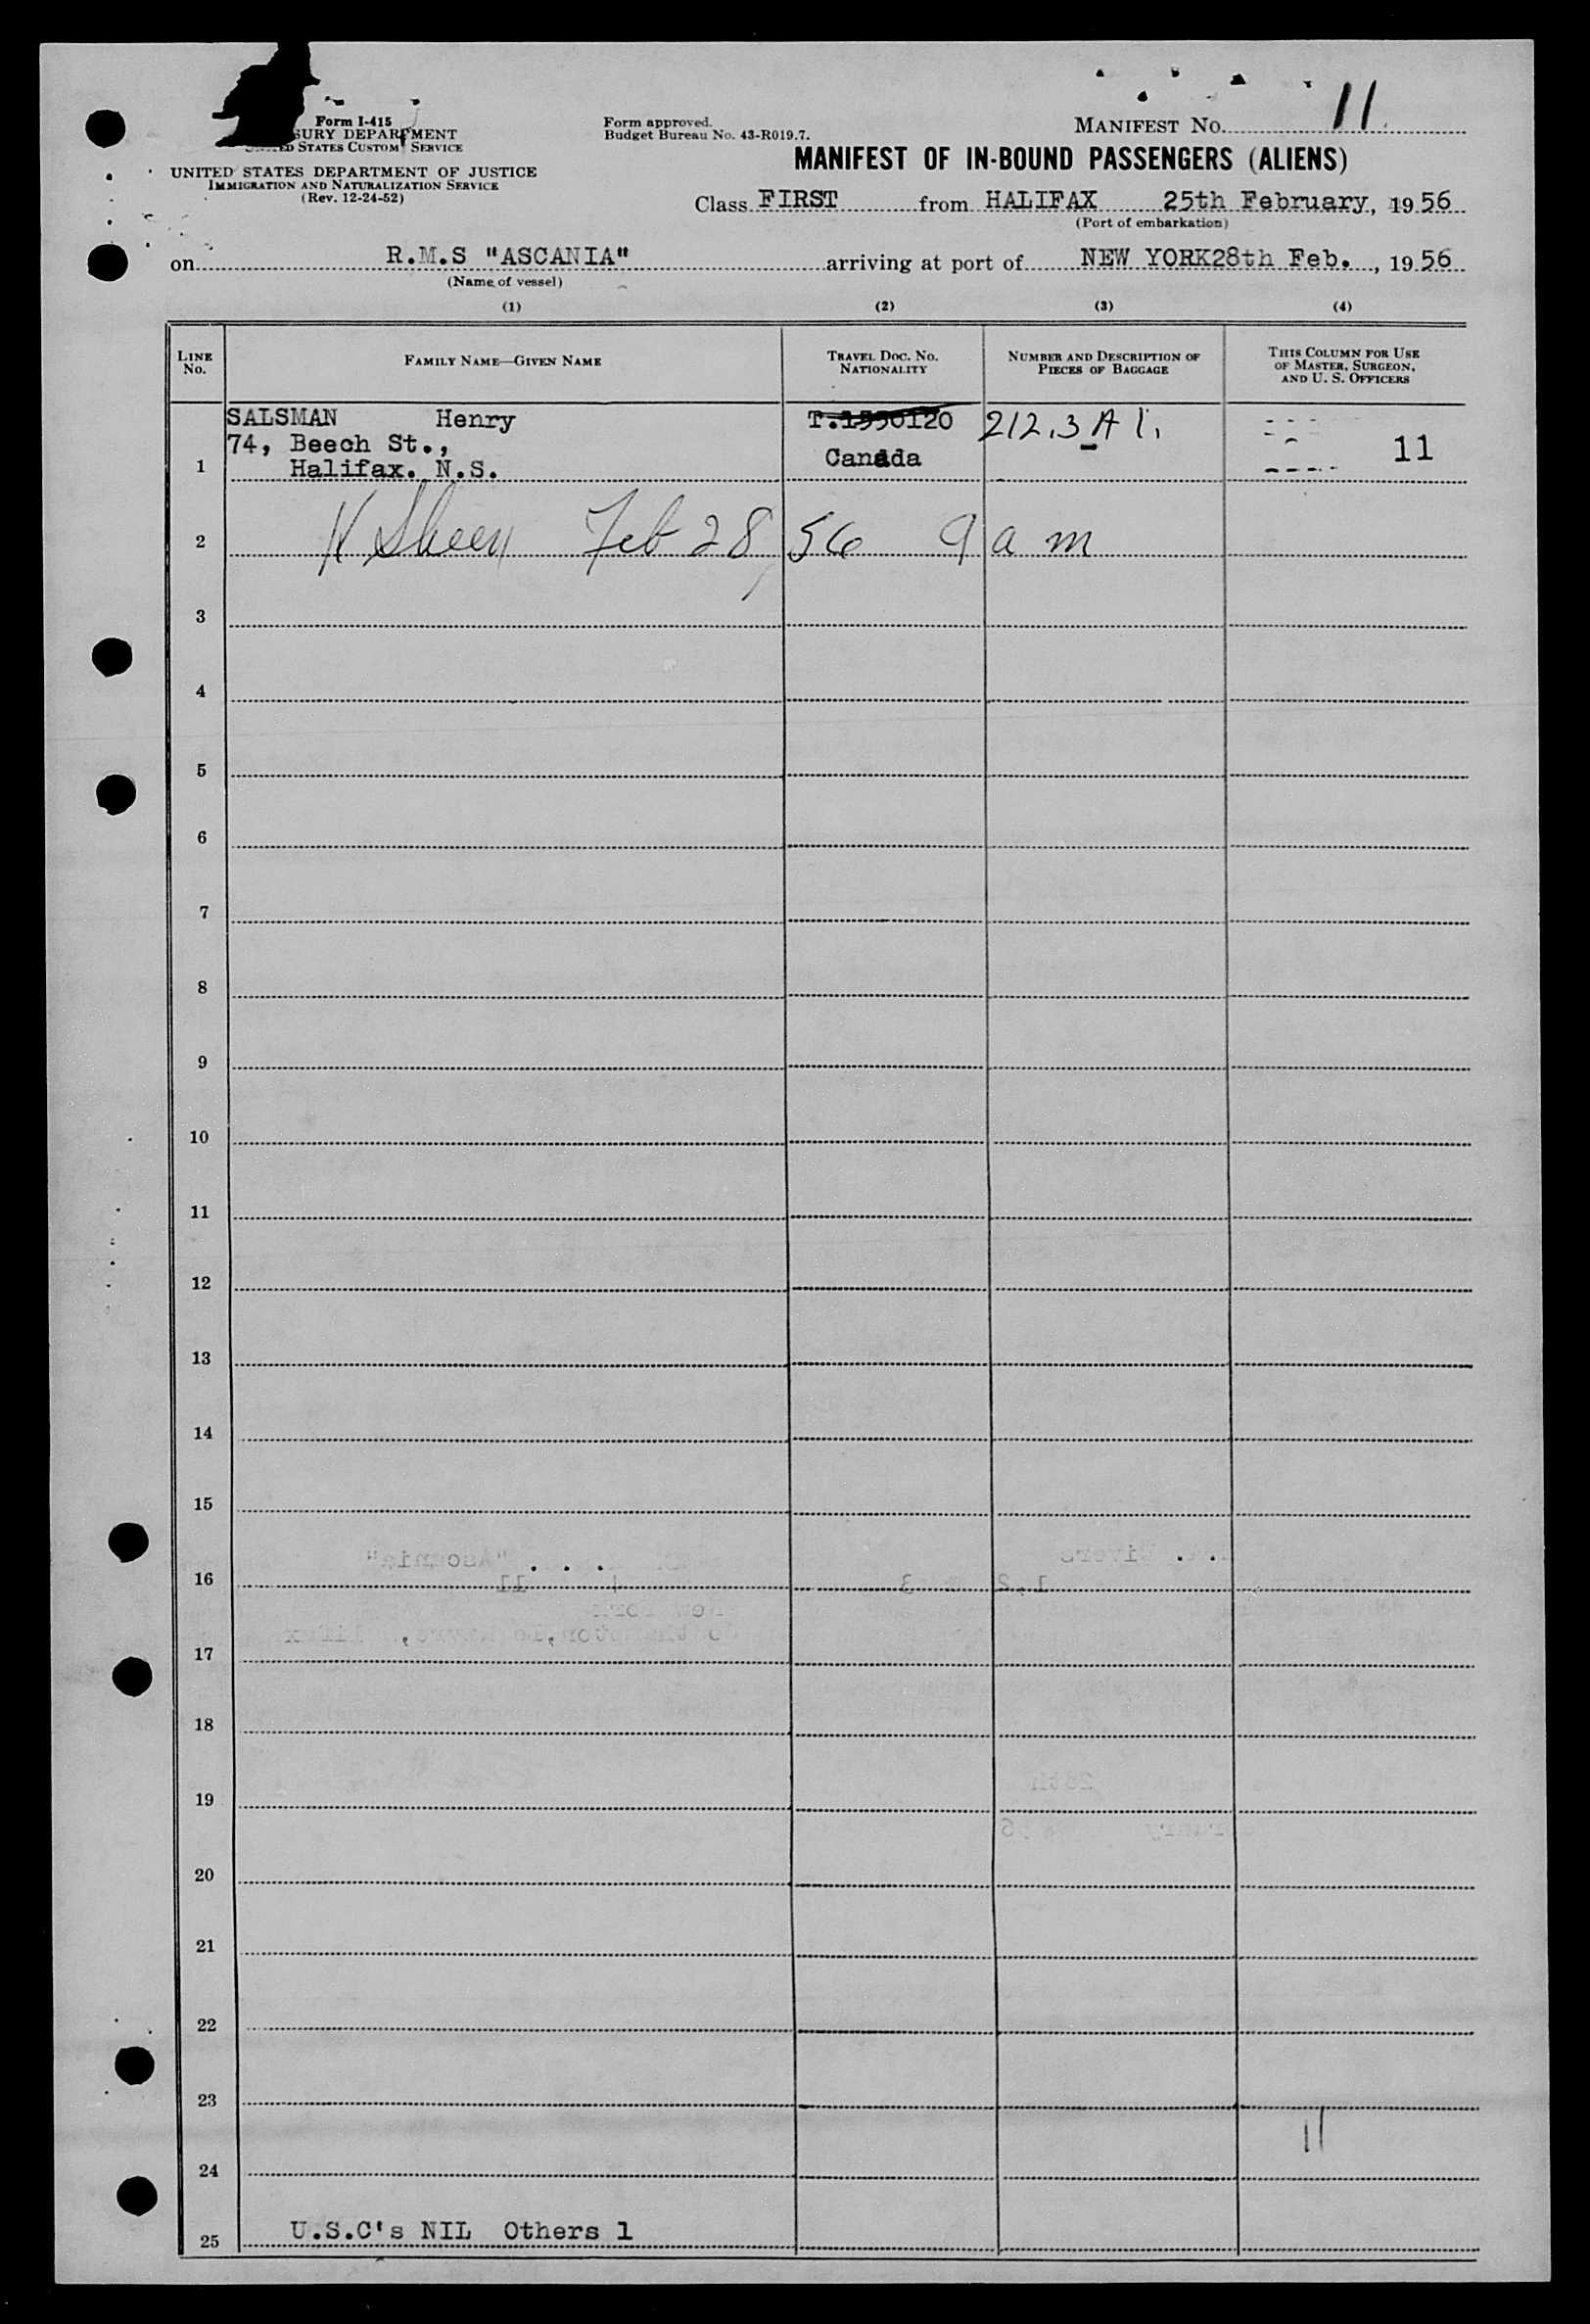 Form I-415
Form approved.
Budget Bureau No. 43-R019.7.
MANIFEST NO. 11
SURY DEPARTMENT
ED STATES CUSTOMS SERVICE
UNITED STATES DEPARTMENT OF JUSTICE
IMMIGRATION AND NATURALIZATION SERVICE
(Rev. 12-24-52)
MANIFEST OF IN-BOUND PASSENGERS (ALIENS)
Class FIRST from HALIFAX 25th February, 1956
(Port of embarkation)
on R.M.S "ASCANIA" arriving at port of NEW YORK 28th Feb. , 1956
(Name of vessel)
(1) (2) (3) (4)
LINE NO.
FAMILY NAME—GIVEN NAME
TRAVEL DOC. NO. NATIONALITY
NUMBER AND DESCRIPTION OF PIECES OF BAGGAGE
THIS COLUMN FOR USE OF MASTER, SURGEON, AND U. S. OFFICERS
SALSMAN Henry T.1550120 212.3 A 1.
74, Beech St.,
Canada 11
1 Halifax. N.S.
2 Feb 28, 56 9 a m
3
4
5
6
7
8
9
10
11
12
13
14
15
16
17
18
19
20
21
22
23
11
24
25 U.S.C's NIL Others 1